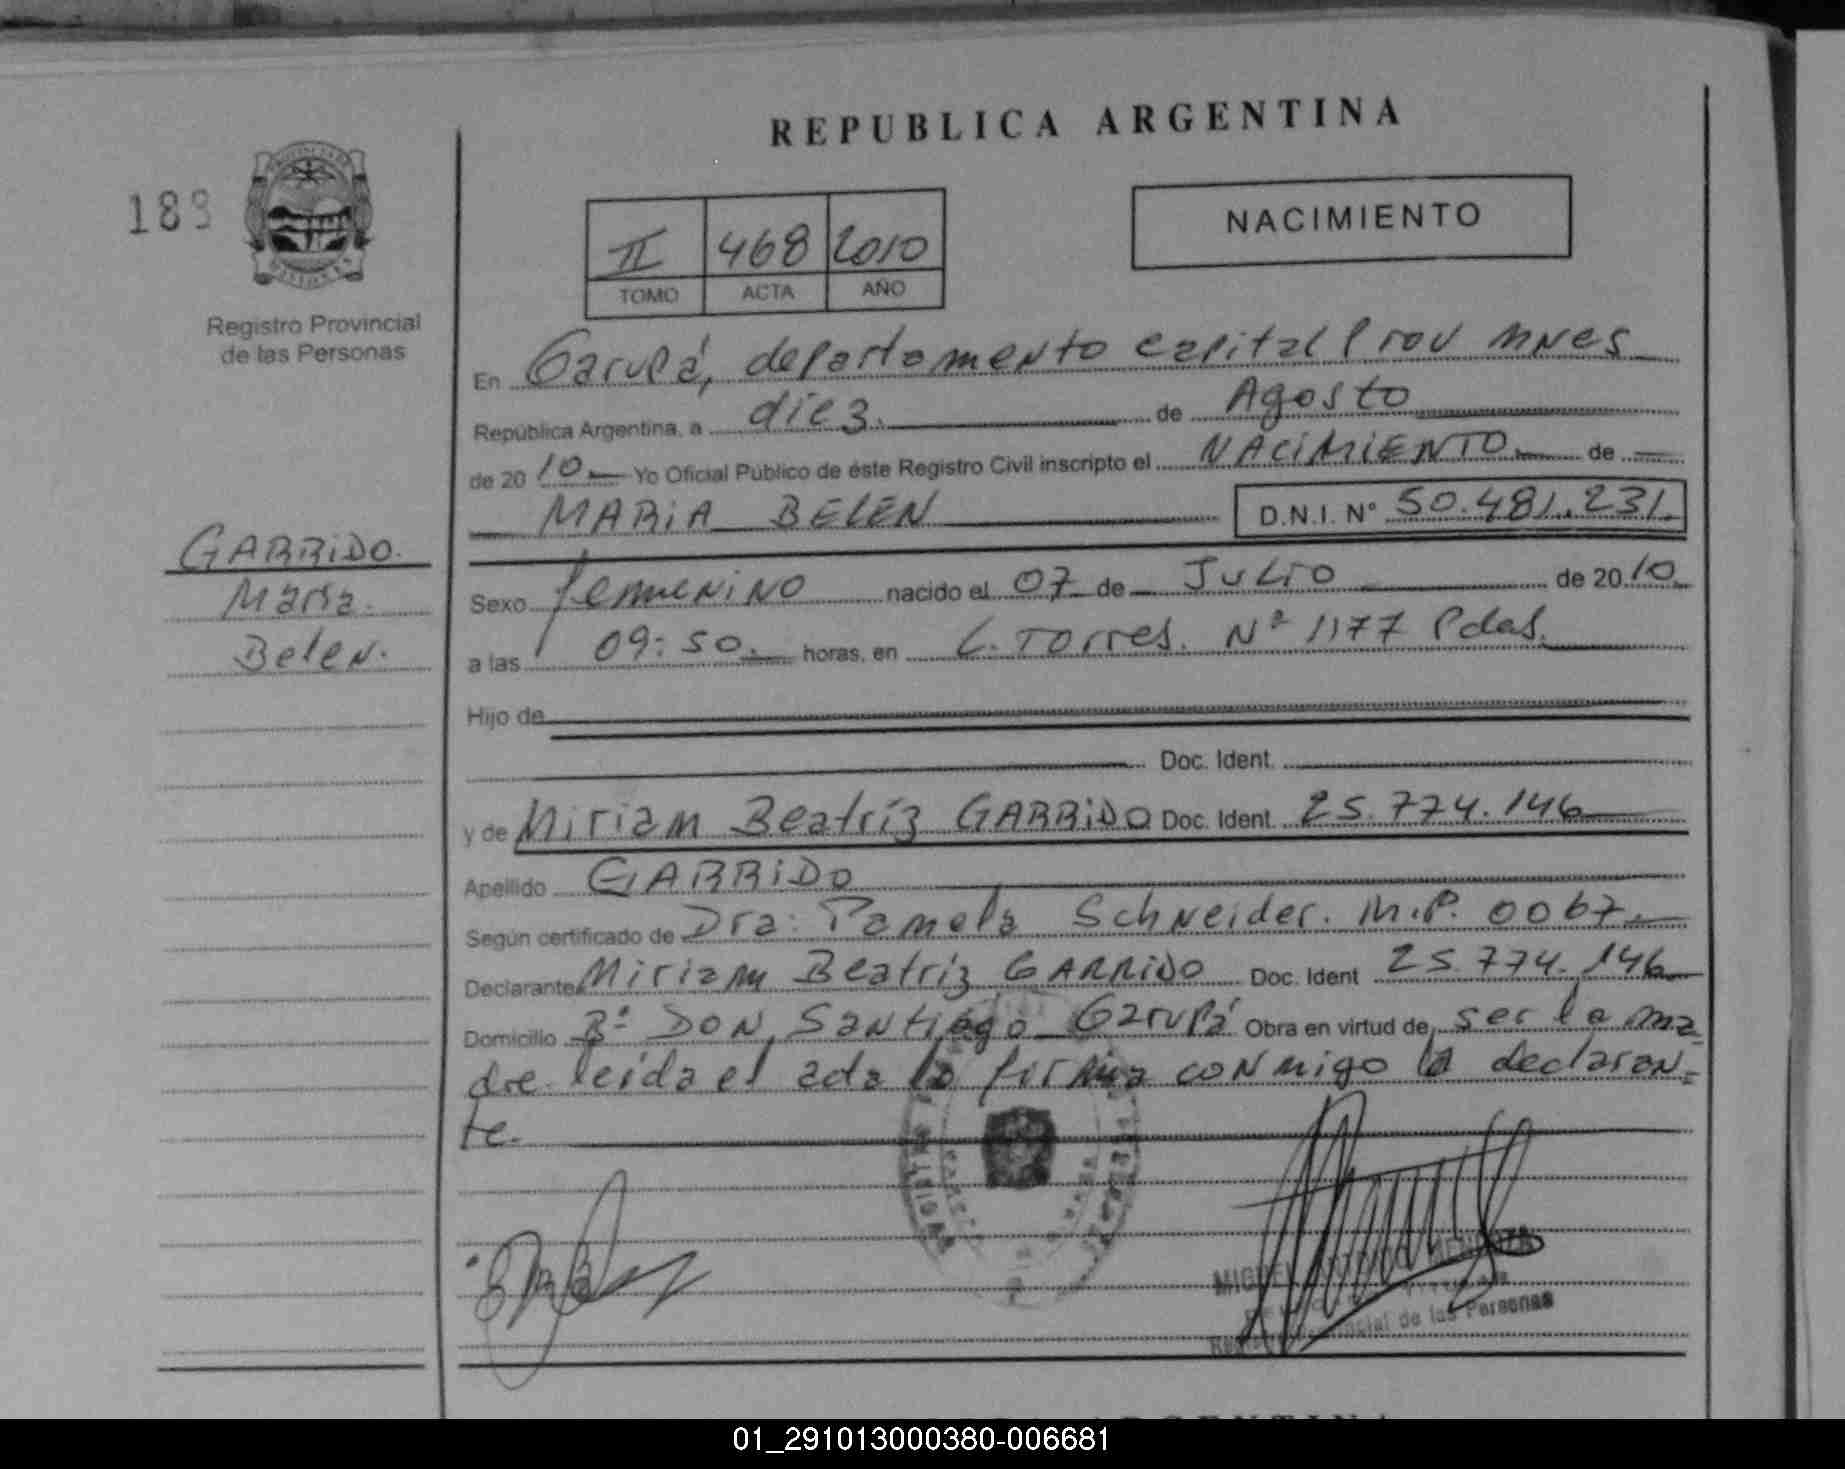 REPUBLICA ARGENTINA
189
PROVINCIA DE
MISIONES
Registro Provincial
de las Personas
NACIMIENTO
II 468 2010
TOMO ACTA AÑO
En Garupá, departamento capital Prov Mnes
República Argentina, a diez. de Agosto
de 2010 Yo Oficial Público de éste Registro Civil inscripto el NACIMIENTO de
MARIA BELEN D.N.I. N° 50.481.231.
GARRIDO.
Maria.
Belen.
Sexo femenino nacido el 07 de Julio de 2010
a las 09:50. horas, en L. Torres. Nº 1177 Pdas.
Hijo de
Doc. Ident.
y de Miriam Beatríz GARRIDO Doc. Ident. 25.774.146
Apellido GARRIDO
Según certificado de Dra: Pamela Schneider. M.P. 0067.
Declarante Miriam Beatríz GARRIDO Doc. Ident 25.774.146
Domicilio Bº DON Santiago Garupá Obra en virtud de ser la ma
dre leida el acta la firma conmigo la declaran=
te.
MIGUEL MENDOZA
Registro Provincial de las Personas
ARGENTINA
01_291013000380-006681